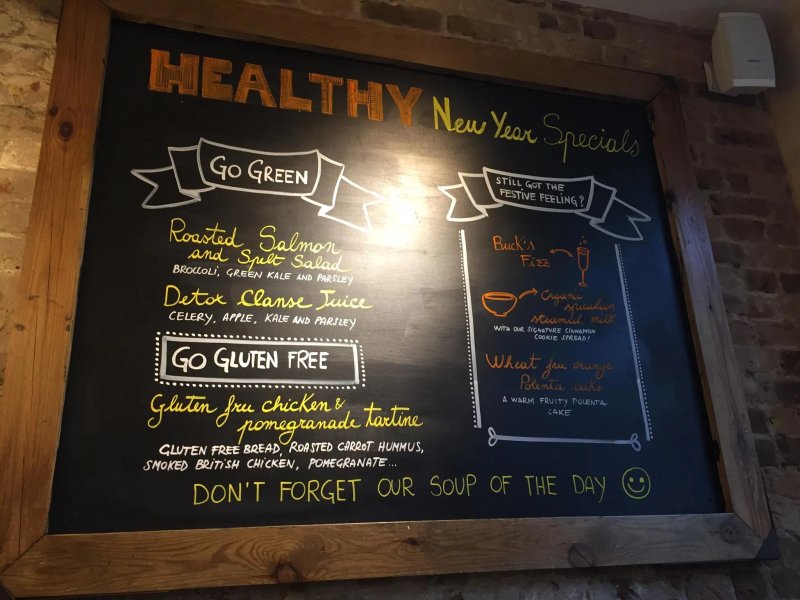 HEALTHY New Year Specials
GO GREEN
Roasted Salmon
and Spelt Salad
BROCCOLI, GREEN KALE AND PARSLEY
Detox Clanse Juice
CELERY, APPLE, KALE AND PARSLEY
GO GLUTEN FREE
Gluten free chicken &
pomegranade tartine
GLUTEN FREE BREAD, ROASTED CARROT HUMMUS,
SMOKED BRITISH CHICKEN, POMEGRANATE...
STILL GOT THE
FESTIVE FEELING?
Buck's
Fizz
Organic
speculoos
steamed milk
WITH OUR SIGNATURE CINNAMON
COOKIE SPREAD!
Wheat free orange
Polenta cake
A WARM FRUITY POLENTA
CAKE
DON'T FORGET OUR SOUP OF THE DAY